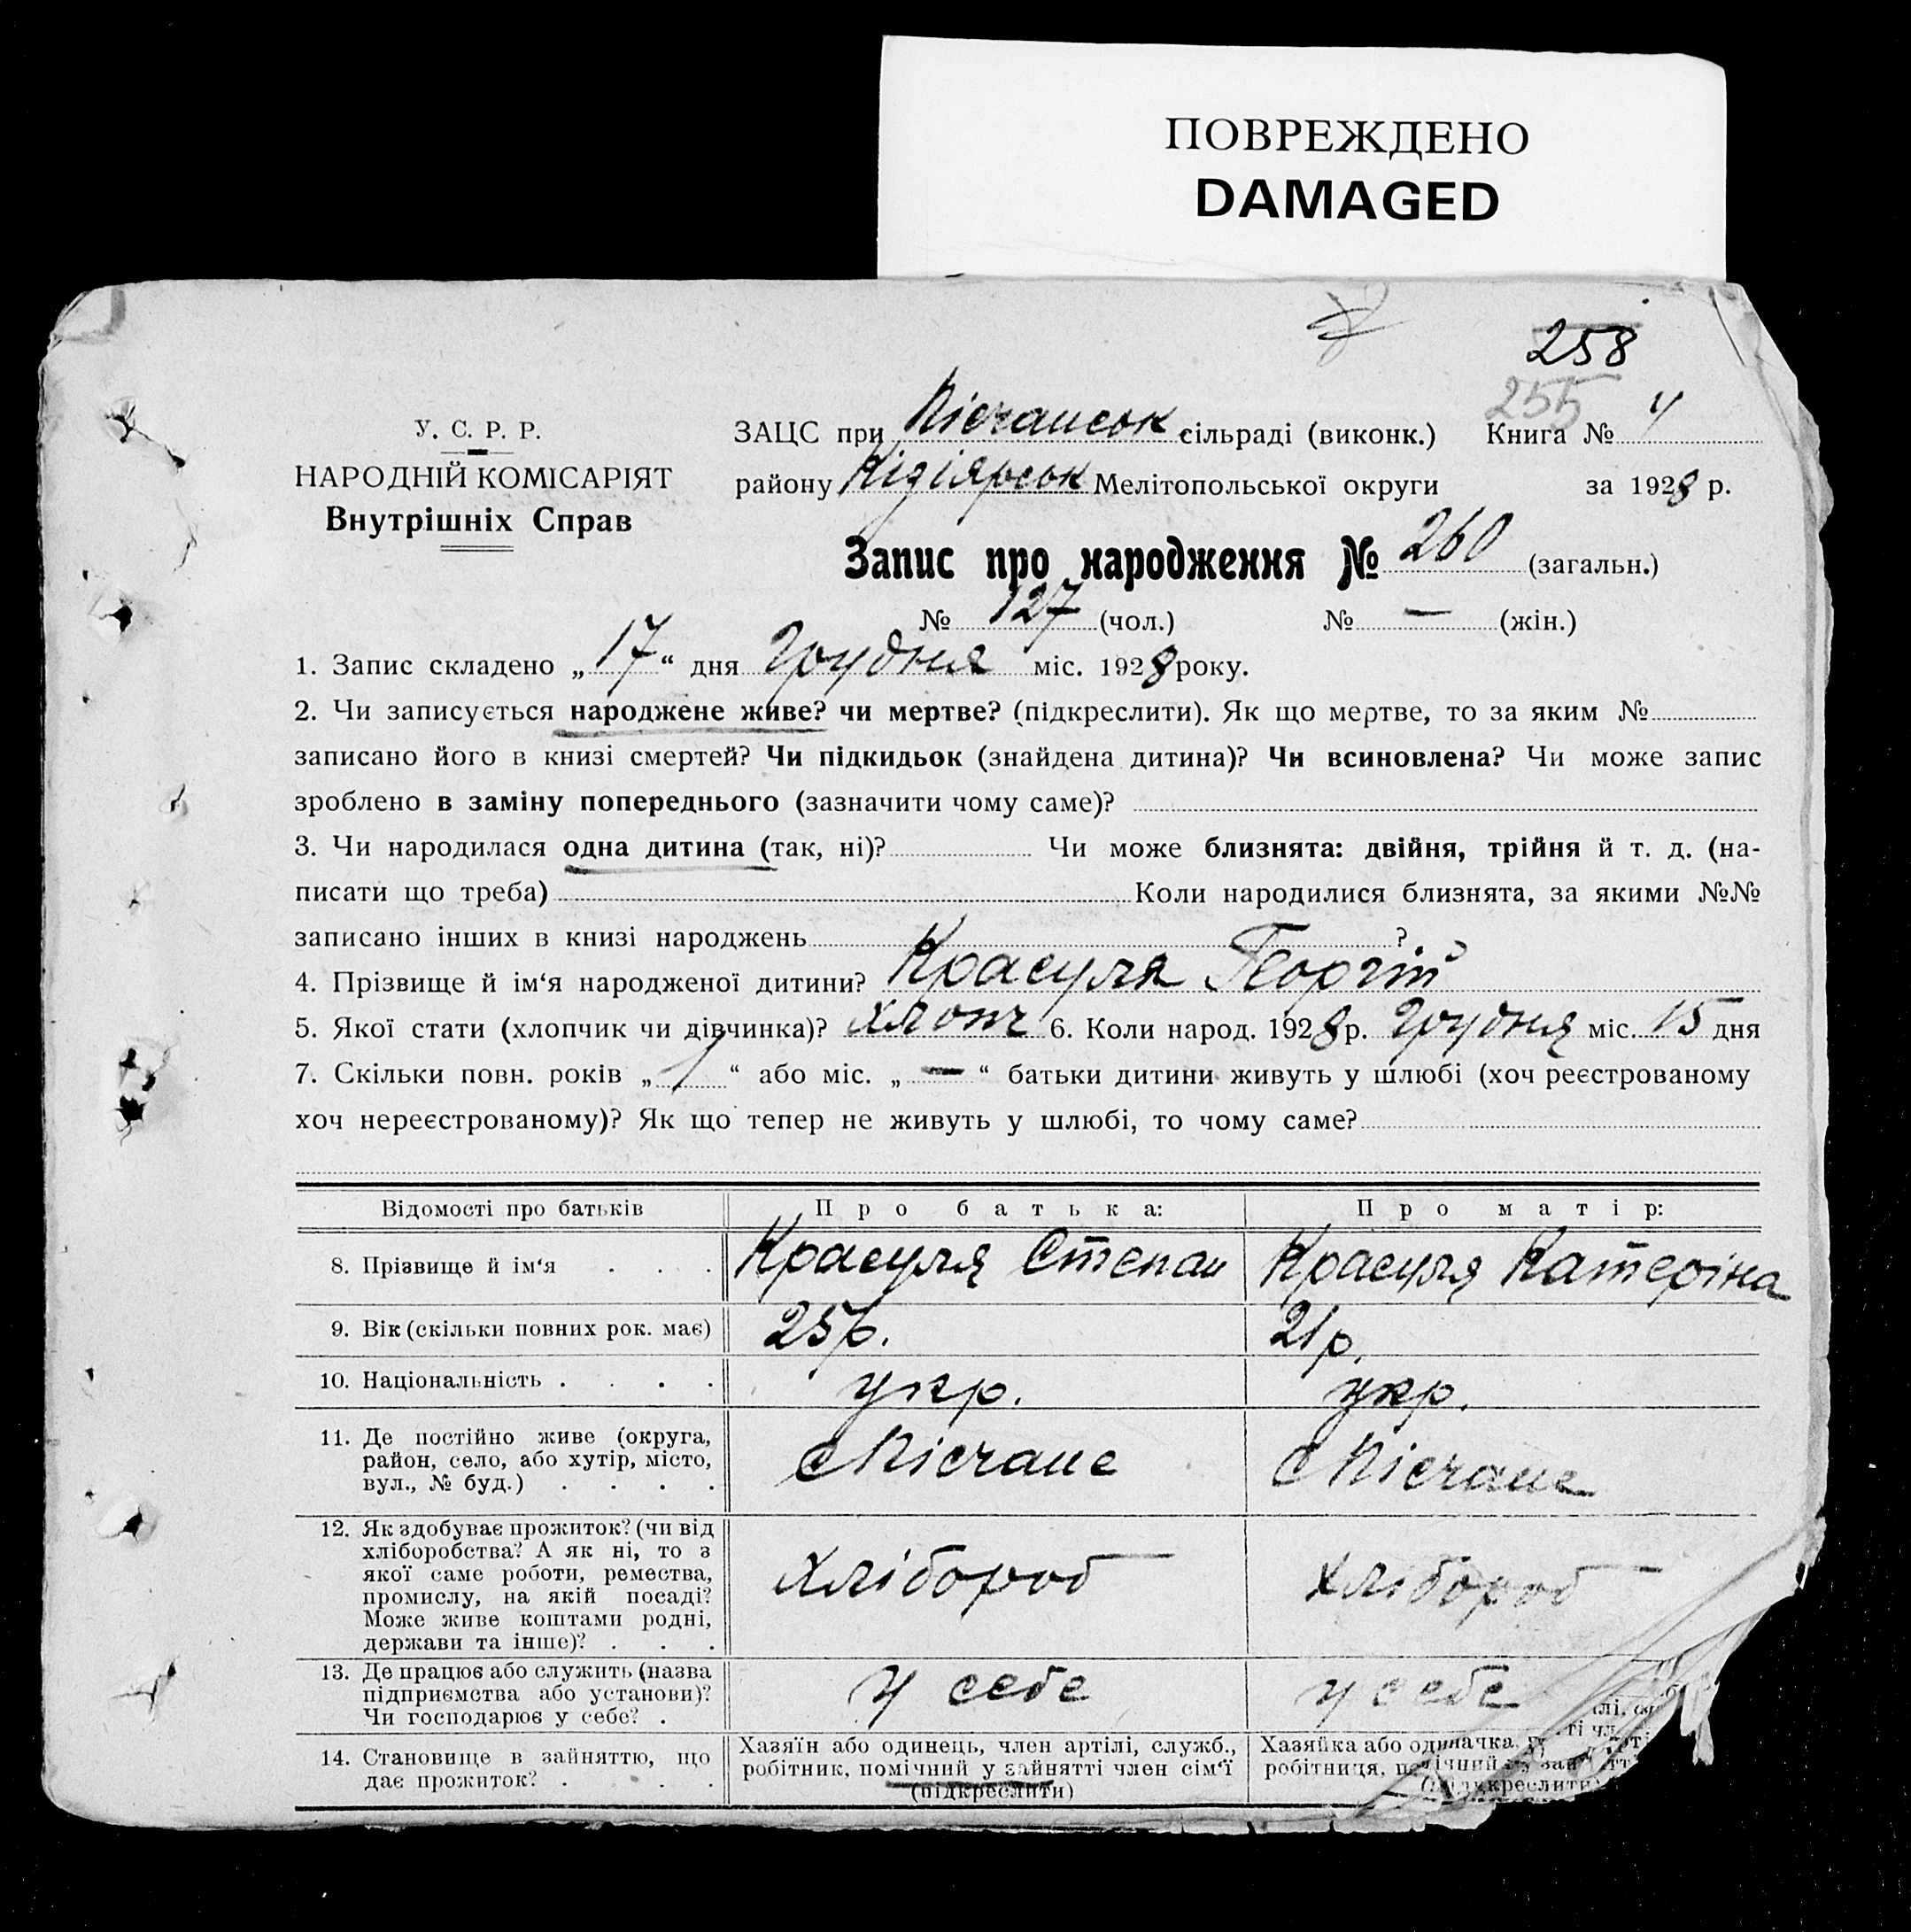 ПОВРЕЖДЕНО
DAMAGED
258
255
У. С. Р. Р.
НАРОДНІЙ КОМІСАРІЯТ
Внутрішніх Справ
ЗАЦС при Пісчанськ сільраді (виконк.) Книга № 4
району Кізіярськ Мелітопольської округи за 1928 р.
Запис про народження № 260 (загальн.)
№ 127 (чол.) № — (жін.)
1. Запис складено „17“ дня Грудня міс. 1928 року.
2. Чи записується народжене живе? чи мертве? (підкреслити). Як що мертве, то за яким №
записано його в книзі смертей? Чи підкидьок (знайдена дитина)? Чи всиновлена? Чи може запис
зроблено в заміну попереднього (зазначити чому саме)?
3. Чи народилася одна дитина (так, ні)? Чи може близнята: двійня, трійня й т. д. (на-
писати що треба) Коли народилися близнята, за якими №№
записано інших в книзі народжень ?
4. Прізвище й ім‘я народженої дитини? Красуля Георгій
5. Якої стати (хлопчик чи дівчинка)? хлопч 6. Коли народ. 1928 р. Грудня міс. 15 дня
7. Скільки повн. років „1“ або міс. „—“ батьки дитини живуть у шлюбі (хоч реєстрованому
хоч нереєстрованому)? Як що тепер не живуть у шлюбі, то чому саме?
Відомості про батьків Про батька: Про матір:
8. Прізвище й ім‘я . . . Красуля Степан Красуля Катеріна
9. Вік (скільки повних рок. має) 25 р. 21 р.
10. Національність . . . . укр. укр.
11. Де постійно живе (округа,
район, село, або хутір, місто,
вул., № буд.) . . . .
с Пісчане с Пісчане
12. Як здобуває прожиток? (чи від
хліборобства? А як ні, то з
якої саме роботи, ремества,
промислу, на якій посаді?
Може живе коштами родні,
держави та інше)? . . .
хлібороб хлібороб
13. Де працює або служить (назва
підприємства або установи)?
Чи господарює у себе? .
у себе у себе
14. Становище в зайняттю, що
дає прожиток? . . . .
Хазяїн або одинець, член артілі, служб.,
робітник, помічний у зайнятті член сім‘ї
(підкреслити)
Хазяйка або одиначка,
робітниця,
(підкреслити)